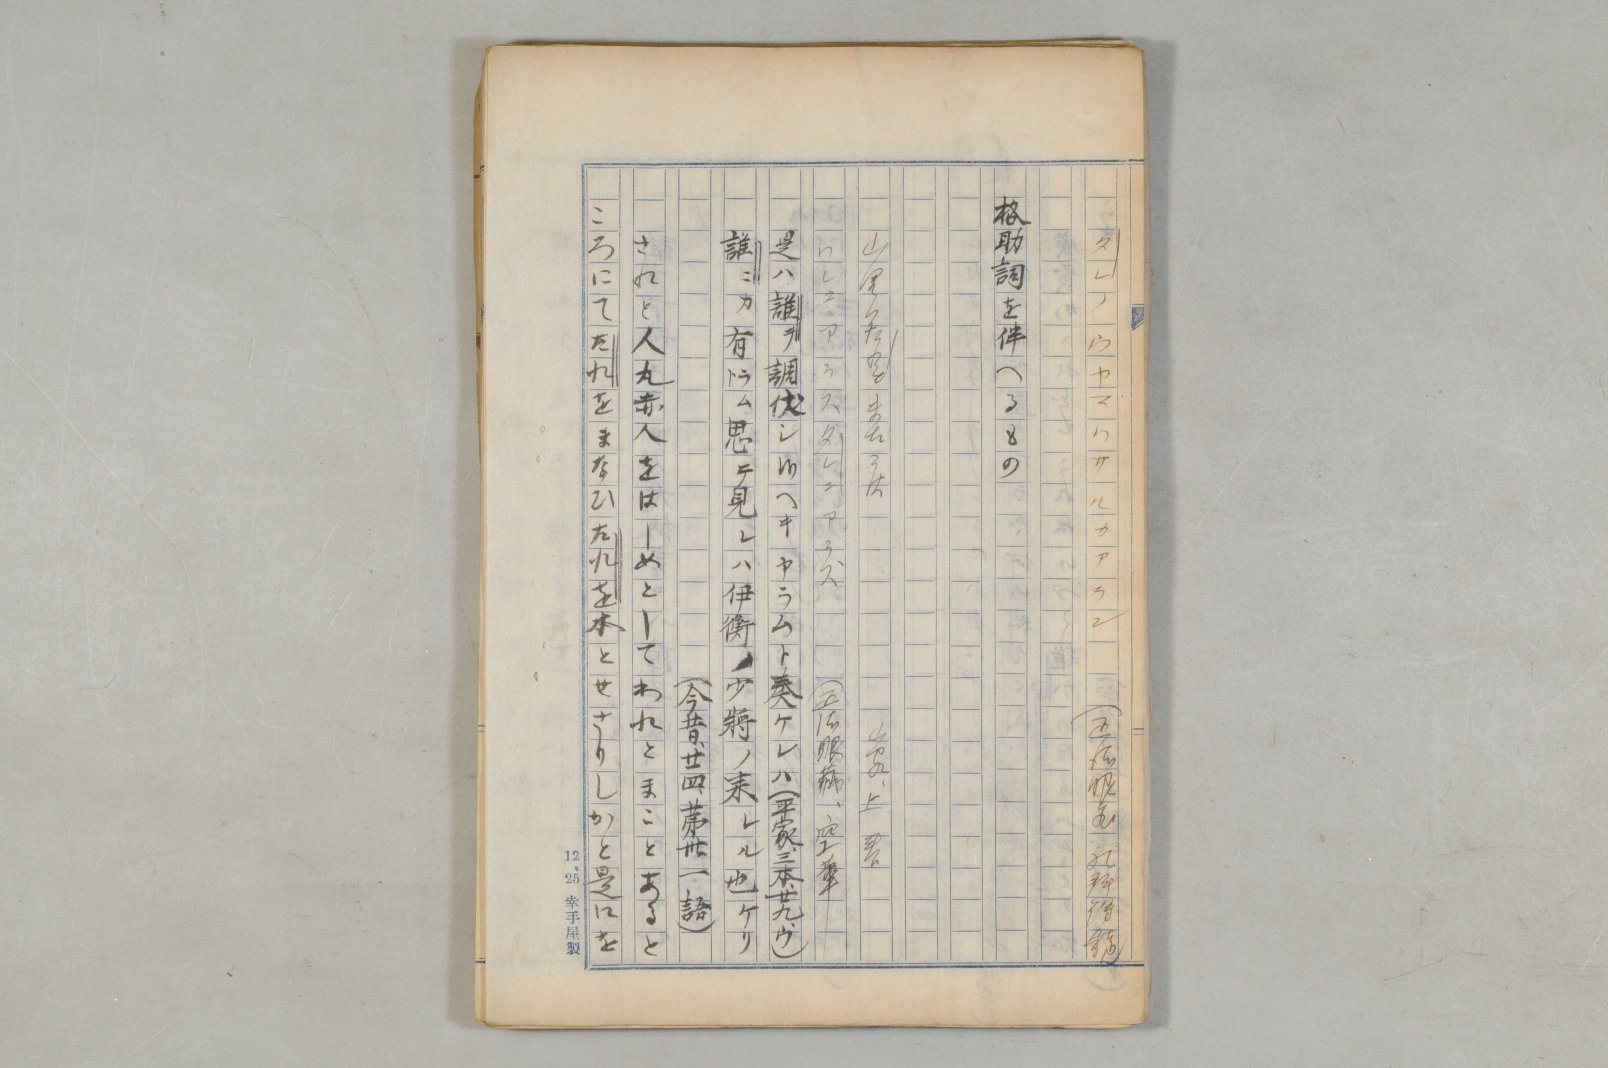 タレノウヤマハサルカアラン
(正法眼蔵
格助詞を伴へるもの
山里
山家、上
ワレニアラスタレニアラズ
(正法眼蔵、空華
是ハ誰ヲ調伏シルヘキヤラムト奏ケレハ(平家、三本、廿九、ウ)
誰ニカ有トラム思テ見レハ伊衡ノ少將ノ来レル也ケリ
(今昔、廿四、第卅一語)
されと人丸赤人をはしめとしてわれとまことあると
ころにてたれをまなひたれを本とせさりしかと是にを
12、25 幸手屋製